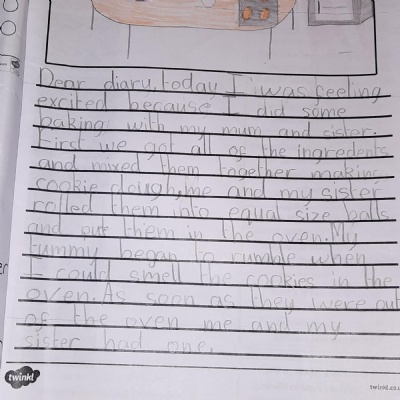 Dear diary, today I was feeling
excited because I did some
baking with my mum and sister.
First we got all of the ingredents
and mixed them together making
cookie dough, me and my sister
rolled them into equal size balls
and put them in the oven. My
tummy began to rumble when
I could smell the cookies in the
oven. As soon as they were out
of the oven me and my
sister had one.
twinkl
twinkl.co.u